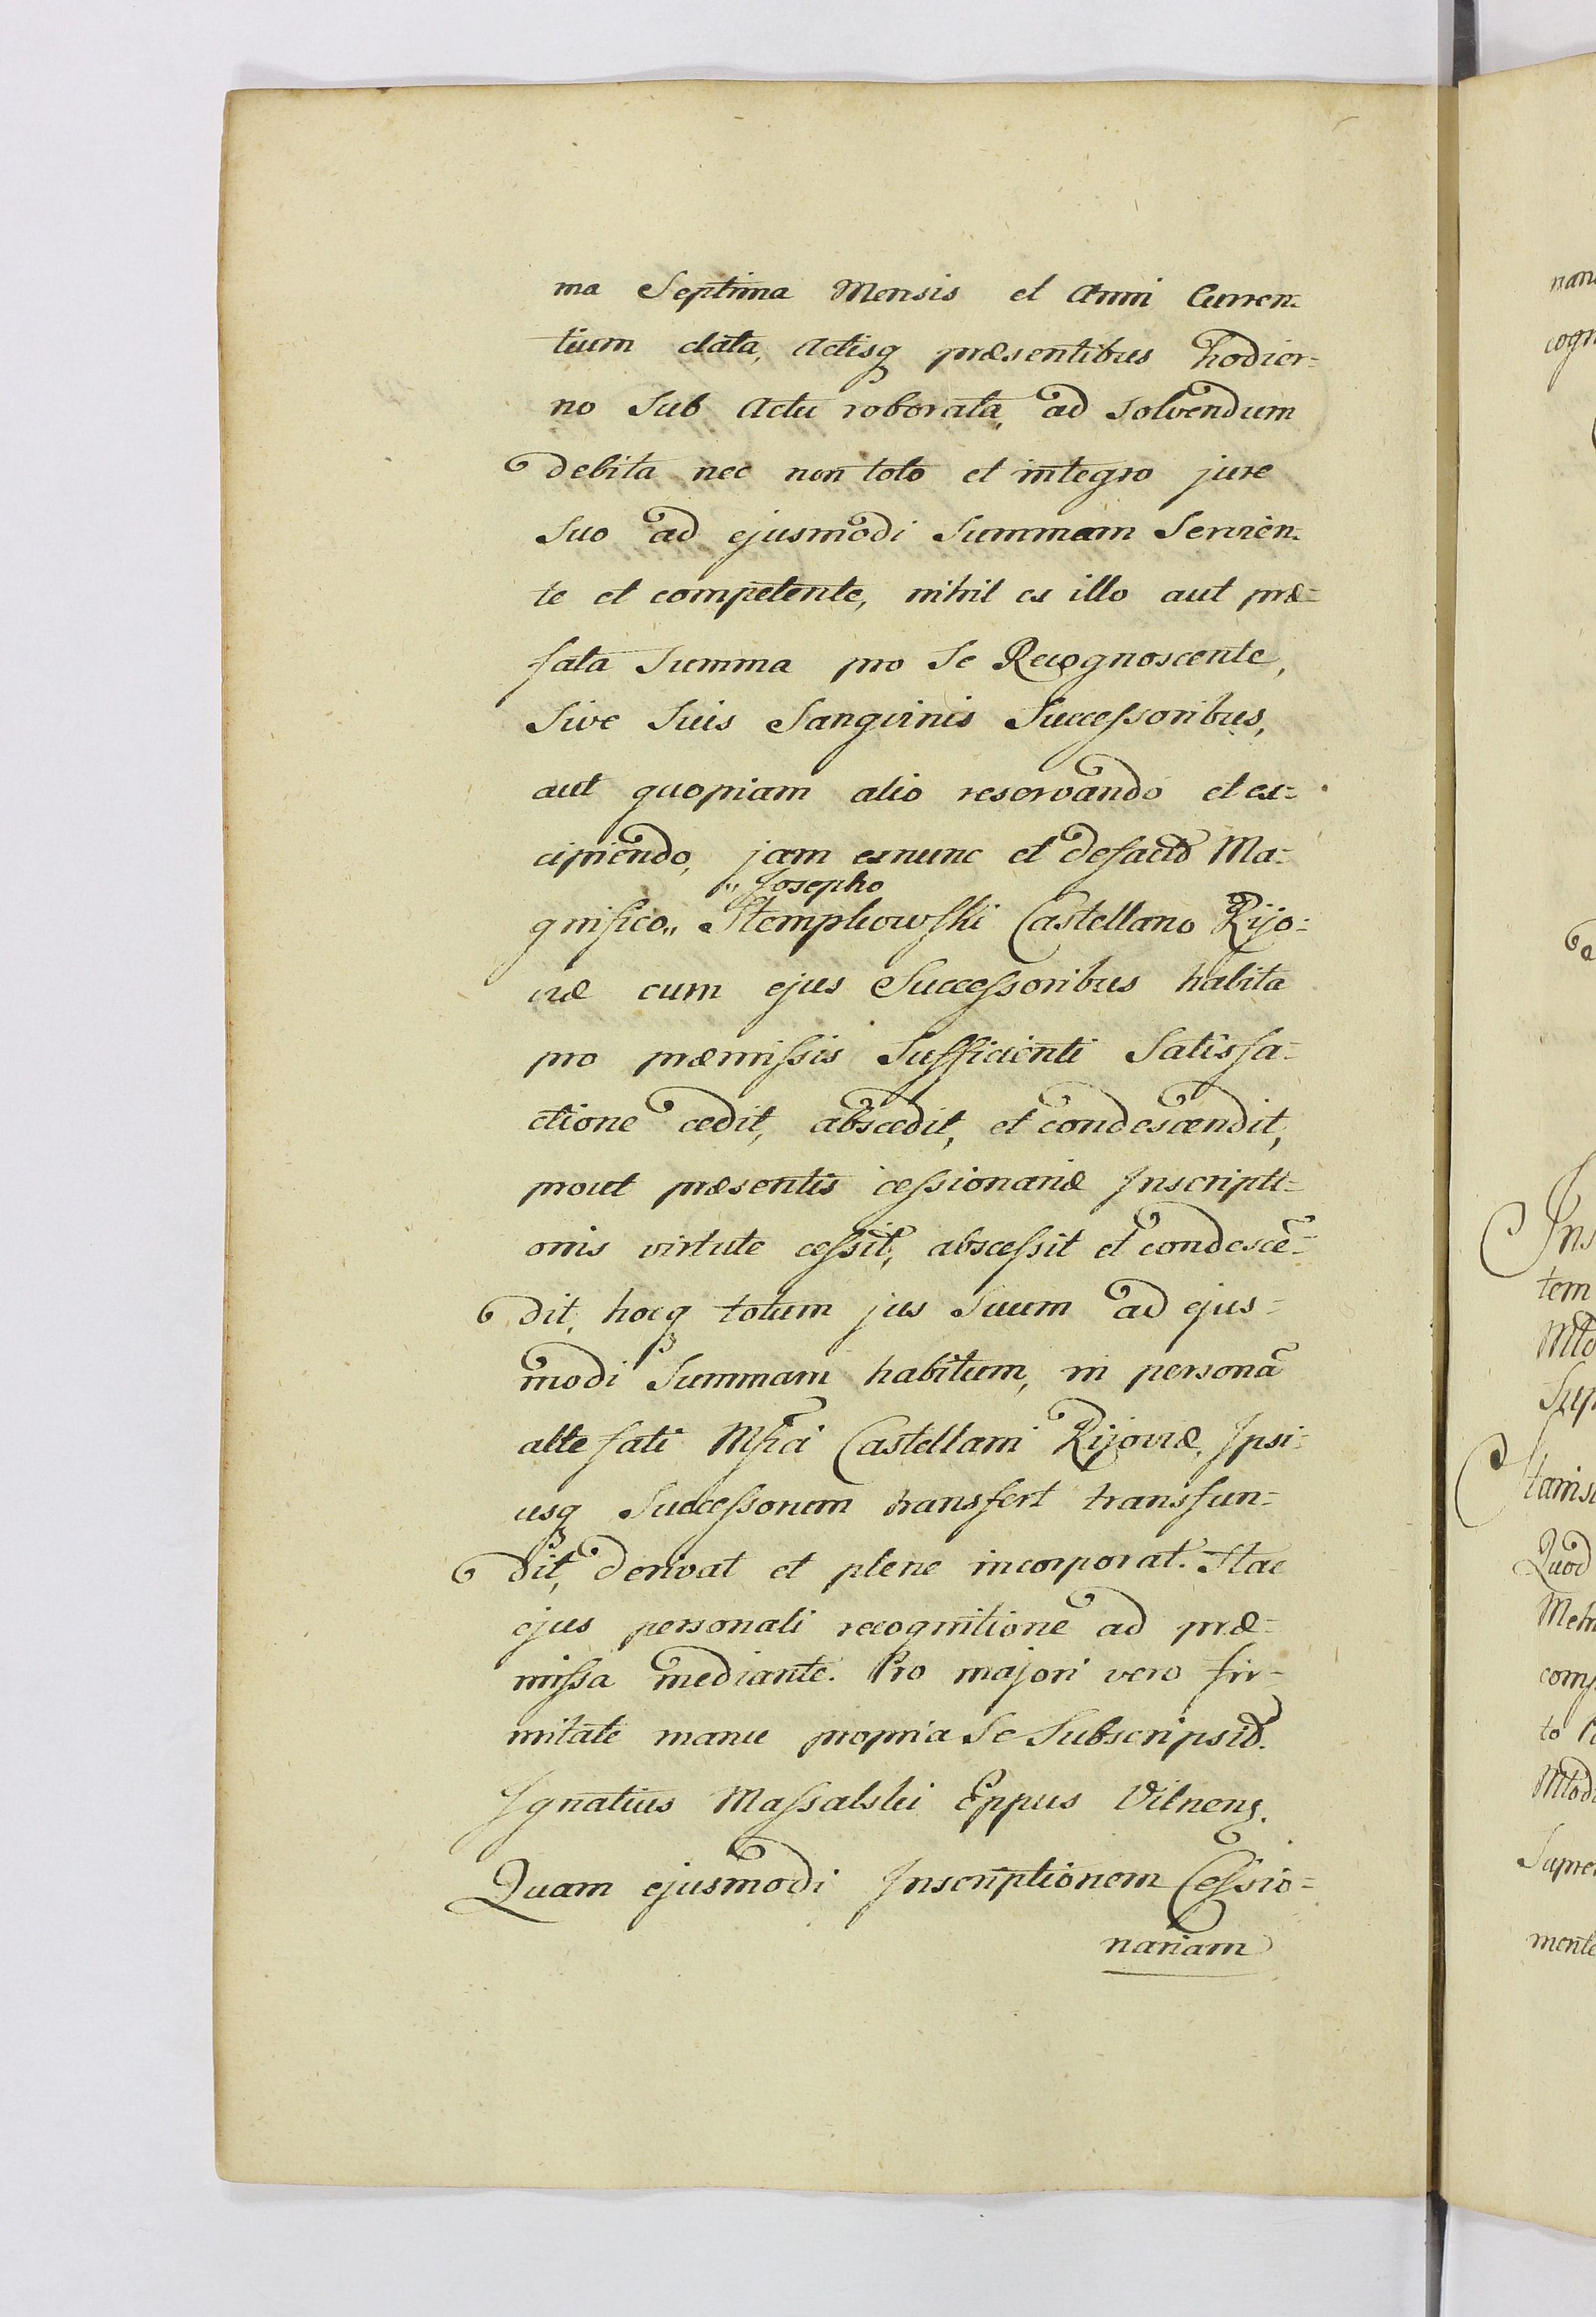 ma Septima Mensis et Anni Curren=
tium data, Actisq₃ præsentibus hodier=
no Sub Actu roborata, ad Solvendum
debita nec non toto et integro jure
Suo ad ejusmodi Summam Servien=
te et competente, nihil ex illo aut præ=
fata Summa pro Se Recognoscente,
Sive Suis Sangvinis Successoribus,
aut quopiam alio reservando et ex=
cipiendo, jam exnunc et defacto Ma=
gnifico,, ,,Josepho Stempkowski Castellano Kijo=
viæ cum ejus Successoribus habita
pro præmissis Sufficienti Satisfa=
ctione cedit, abscedit, et condescendit,
prout præsentis cessionariæ Inscripti=
onis virtute cessit, abscessit et condescē=
dit, hocq₃ totum jus Suum ad ejus=
modi Summam habitum, in personã
alte fati Mfici Castellani Kijoviæ, Ipsi=
usq₃ Successorum transfert transfun=
dit, derivat et plene incorporat. Hac
ejus personali recognitione ad præ=
missa mediante. Pro majori vero fir=
mitate manu propria Se Subscripsit.
Ignatius Massalski Eppus Vilnens.
Quam ejusmodi Inscriptionem Cessio=
nariam